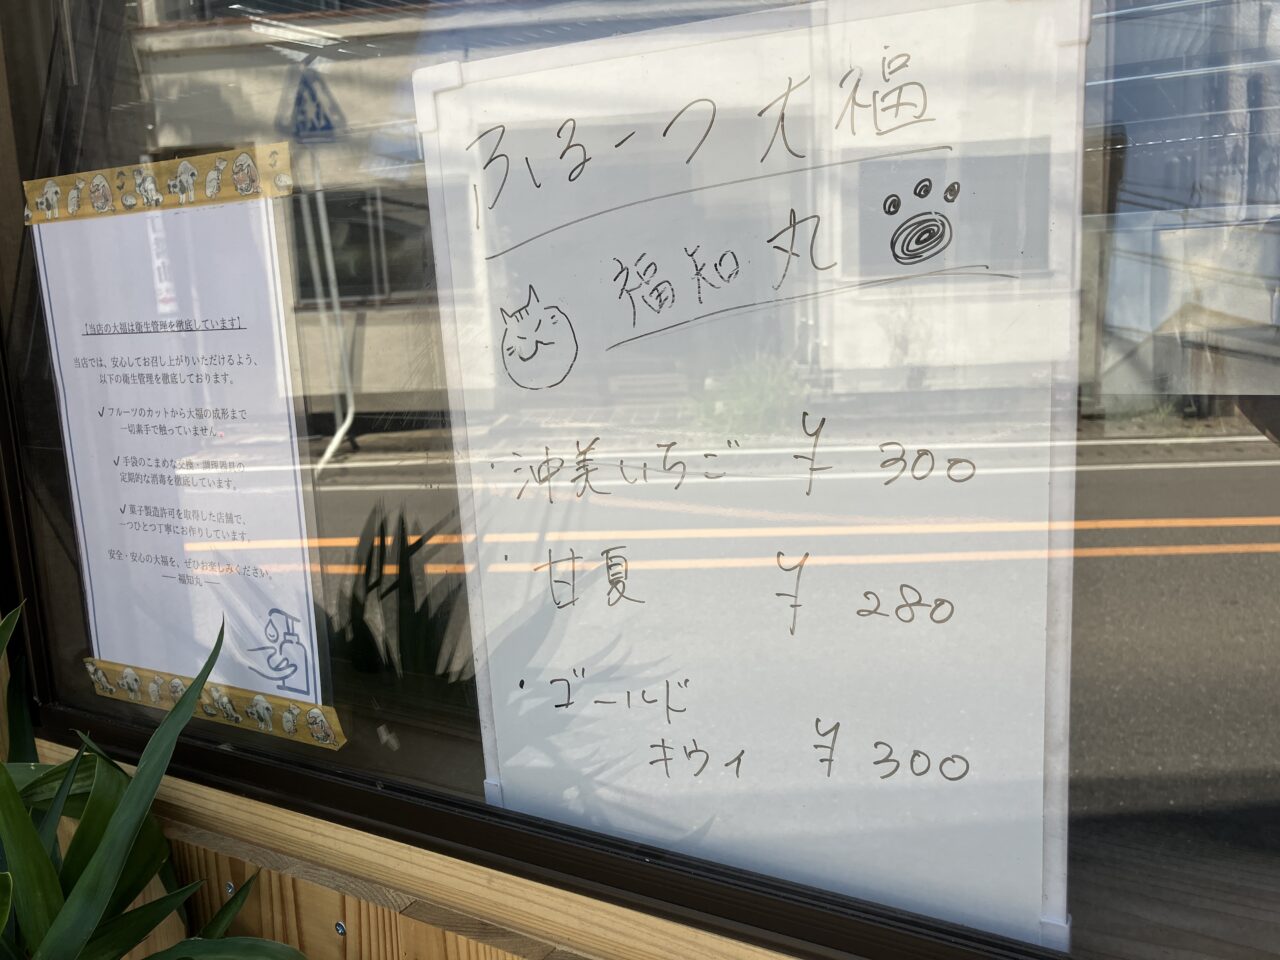 【当店の大福は衛生管理を徹底しています】
当店では、安心してお召し上がりいただけるよう、
以下の衛生管理を徹底しております。
✓フルーツのカットから大福の成形まで
一切素手で触っていません。
✓手袋のこまめな交換・調理器具の
定期的な消毒を徹底しています。
✓菓子製造許可を取得した店舗で、
一つひとつ丁寧にお作りしています。
安全・安心の大福を、ぜひお楽しみください。
── 福知丸 ──
ふるーつ大福
福知丸
・沖美いちご ¥300
・甘夏 ¥280
・ゴールド
キウイ ¥300